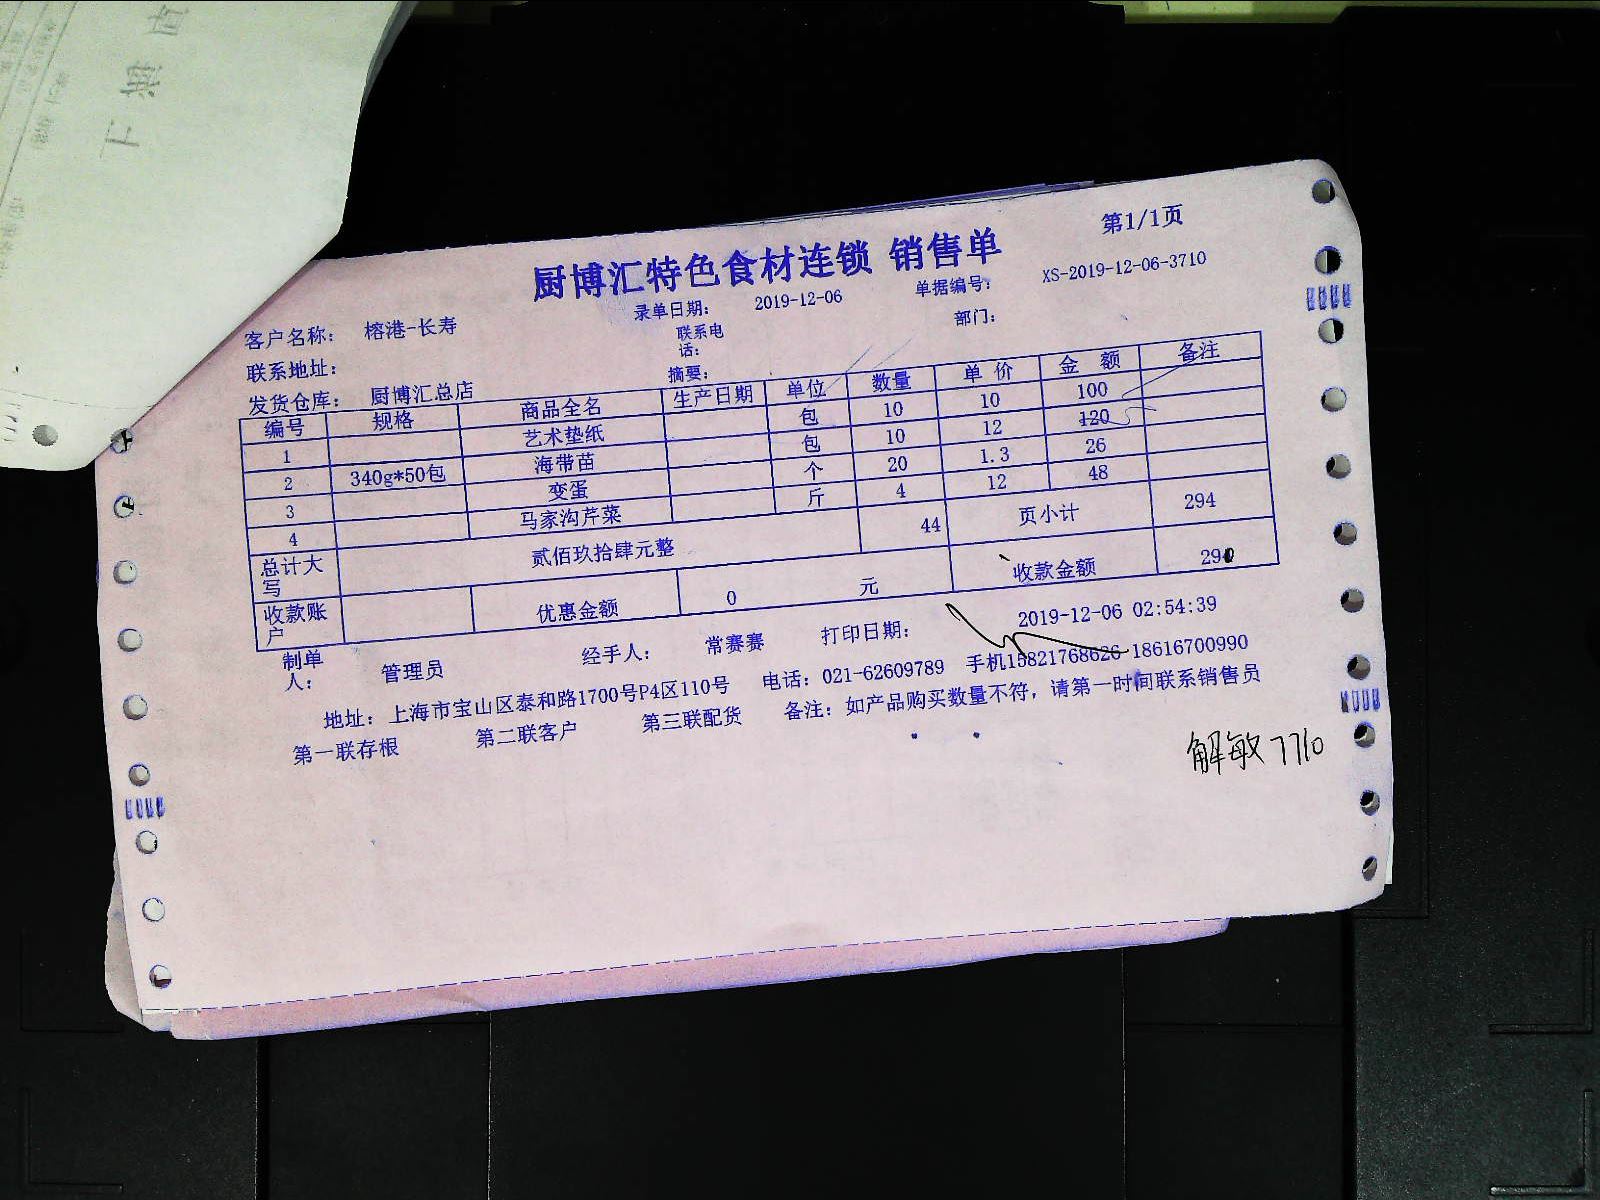 上 海 直
第1/1页
厨博汇特色食材连锁 销售单
录单日期： 2019-12-06 单据编号： XS-2019-12-06-3710
客户名称： 榕港-长寿 联系电话： 部门：
联系地址： 摘要：
发货仓库： 厨博汇总店
编号 规格 商品全名 生产日期 单位 数量 单 价 金 额 备注
1 艺术垫纸 包 10 10 100
2 340g*50包 海带苗 包 10 12 120
3 变蛋 个 20 1.3 26
4 马家沟芹菜 斤 4 12 48
总计大写 贰佰玖拾肆元整 44 页小计 294
收款账户 优惠金额 0 元 收款金额 290
制单人： 管理员 经手人： 常赛赛 打印日期： 2019-12-06 02:54:39
地址：上海市宝山区泰和路1700号P4区110号 电话：021-62609789 手机15821768626 18616700990
第一联存根 第二联客户 第三联配货 备注：如产品购买数量不符，请第一时间联系销售员
解敏 7710